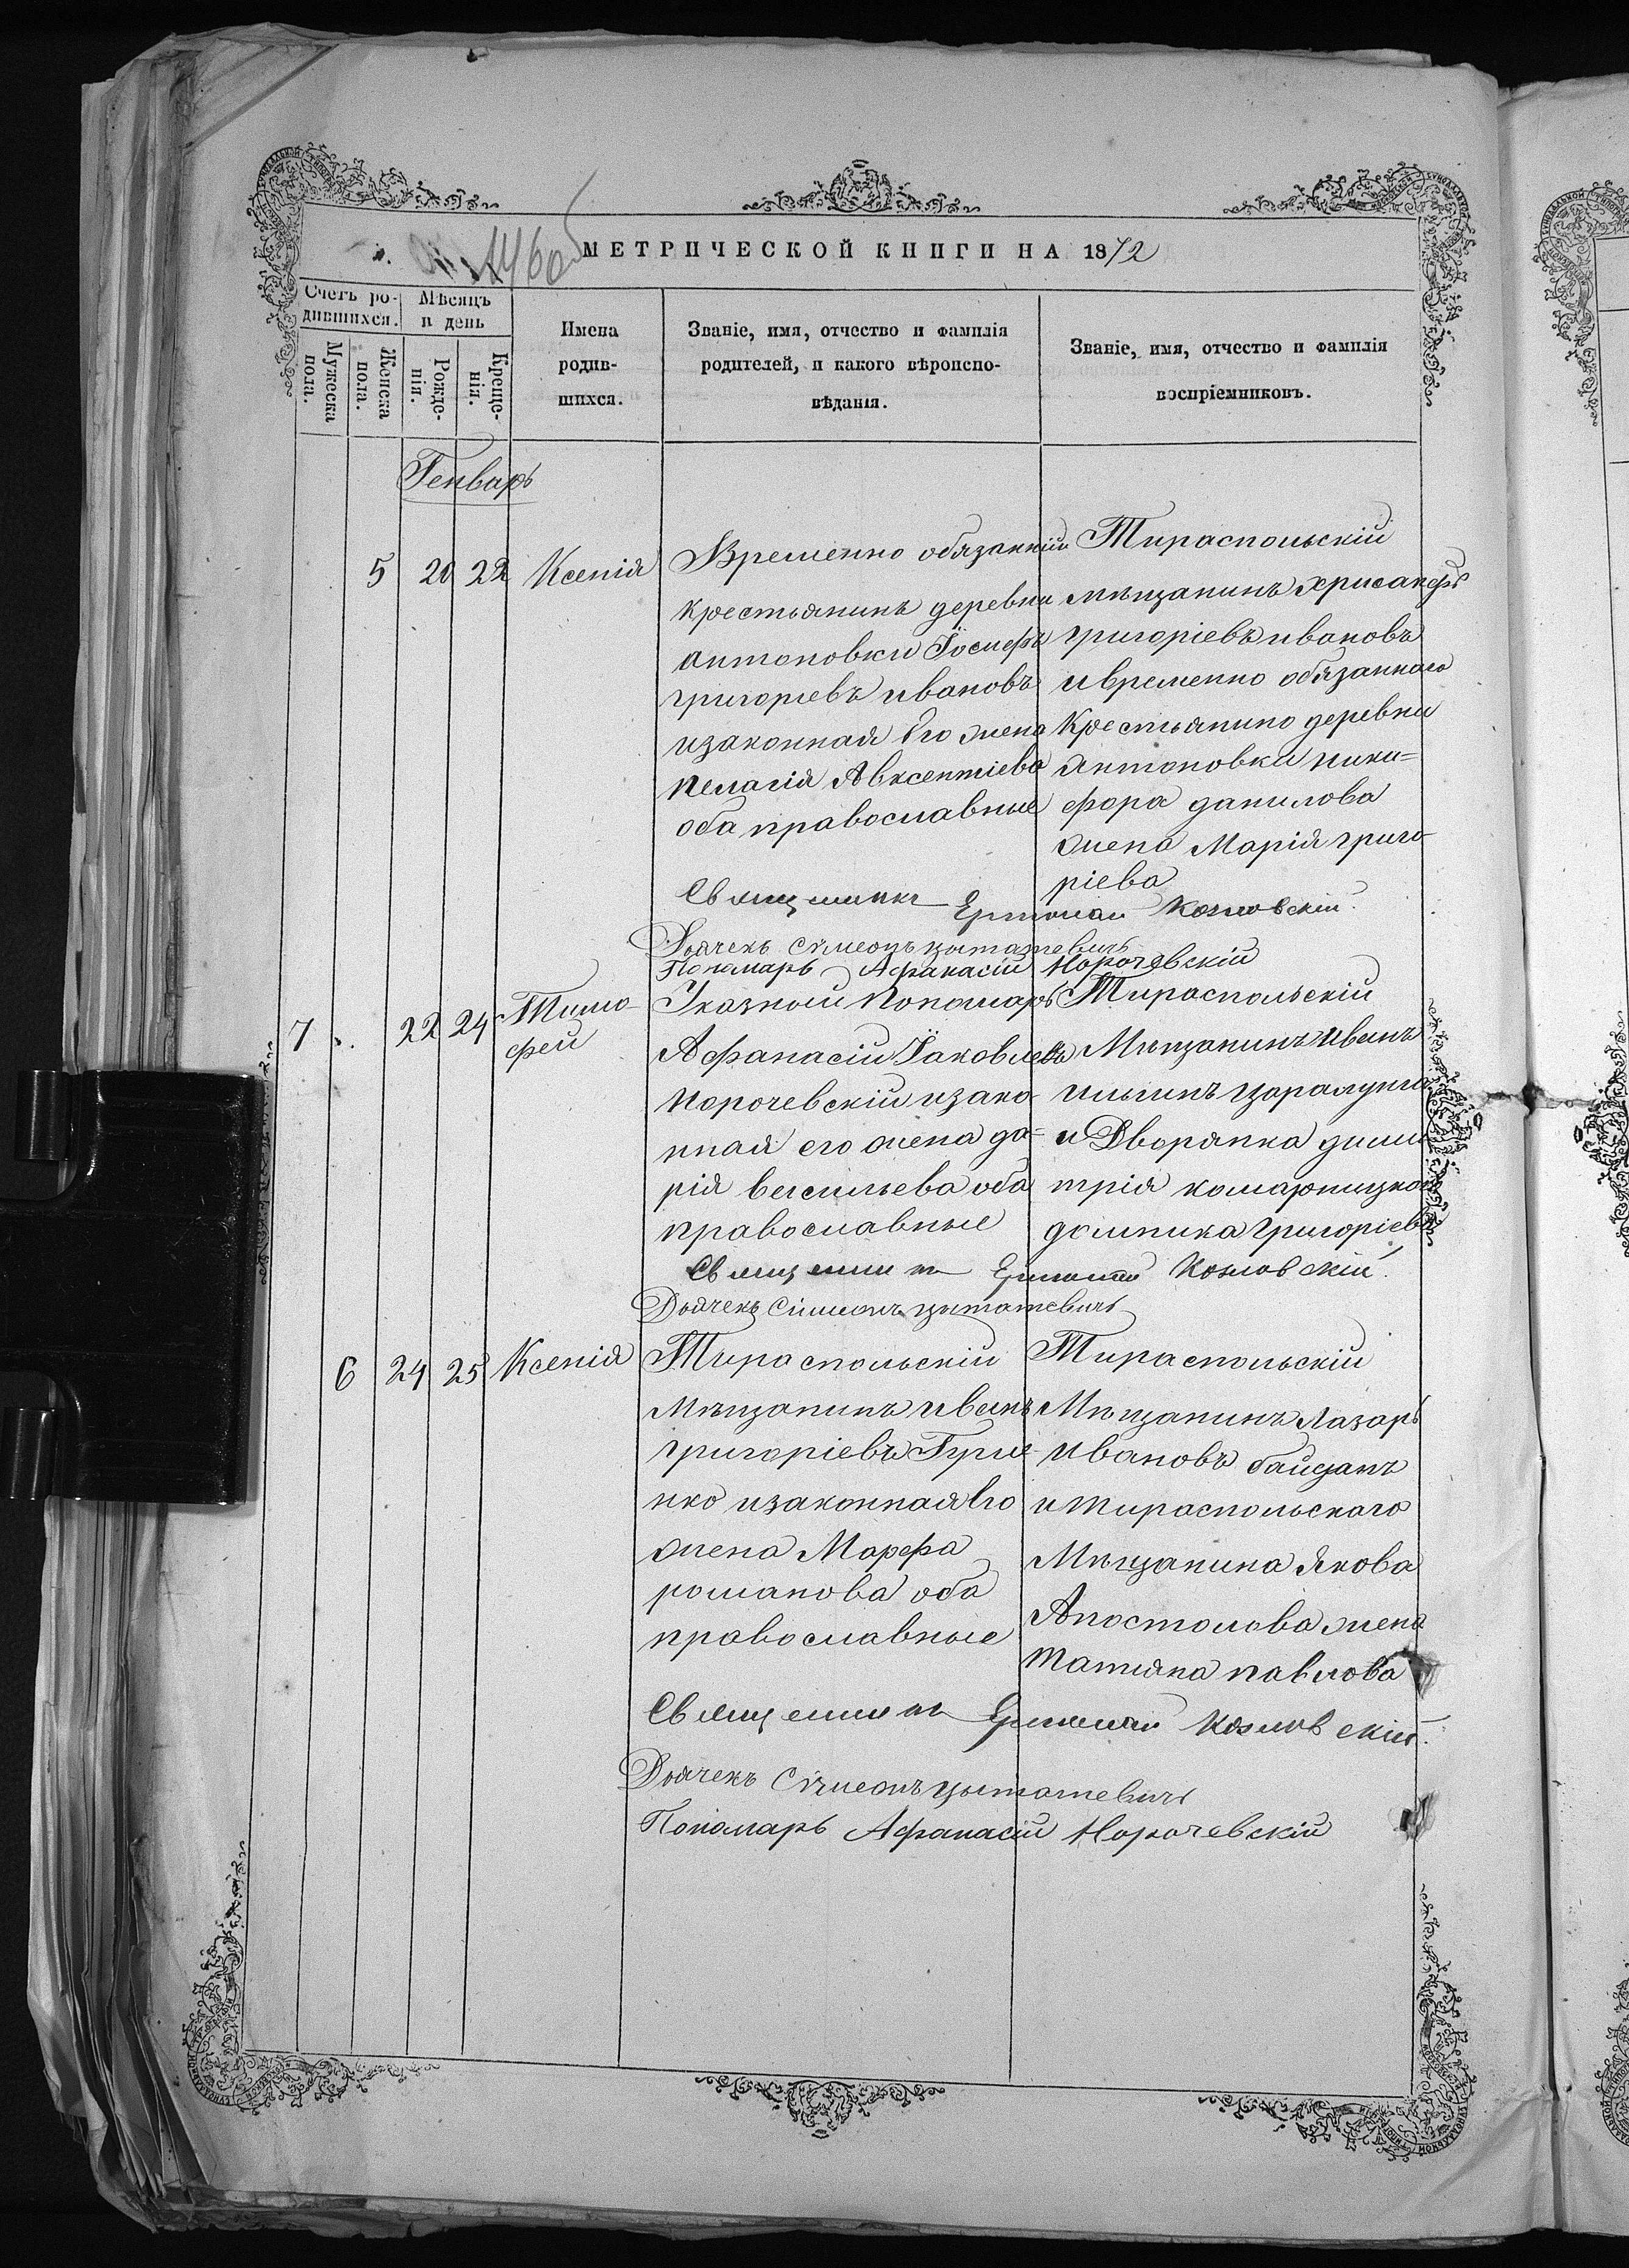 МЕТРИЧЕСКОЙ КНИГИ НА 1872
Счетъ ро-
дившихся.
Мѣсяцъ
и день
Мужеска
пола.
Женска
пола.
Рожде-
нія.
Креще-
нія.
Имена
родив-
шихся.
Званіе, имя, отчество и фамилія
родителей, и какого вѣроиспо-
вѣданія.
Званіе, имя, отчество и фамилія
воспріемниковъ.
Генварь
5 20 22 Ксенія
Временно обязанній
крестьянинъ деревни
антоновки Іосифъ
григоріевъ ивановъ
изаконная его жена
пелагія Авксентіева
оба православные
Тираспольскій
мѣщанинъ хрисанфъ
григоріевъ ивановъ
ивременно обязаннаго
Крестьянина деревни
Антоновки ники-
фора данилова
жена Марія григо-
ріева
Священникъ Козловскій
Дьячекъ Сѵмеонъ
Пономарь Афанасій Норочевскій
7 22 24 Тимо-
фей
Указный пономарь
Афанасій Іаковлевъ
норочевскій изако-
нная его жена да-
рія васильева оба
православные
Тираспольскій
Мѣщанинъ иванъ
ильинъ
и Дворянка дими-
трія
домника григоріева
Священникъ Козловскій
Дьячекъ Сімеонъ
6 24 25 Ксенія
Тираспольскій
Мѣщанинъ иванъ
григоріевъ
нко изаконная его
жена Марфа
романова оба
православные
Тираспольскій
Мѣщанинъ Лазарь
Ивановъ байданъ
и тираспольскаго
Мѣщанина Якова
Апостолова жена
татияна павлова
Священникъ Козловскій
Дьячекъ Сѵмеонъ
Пономарь Афанасій Норочевскій